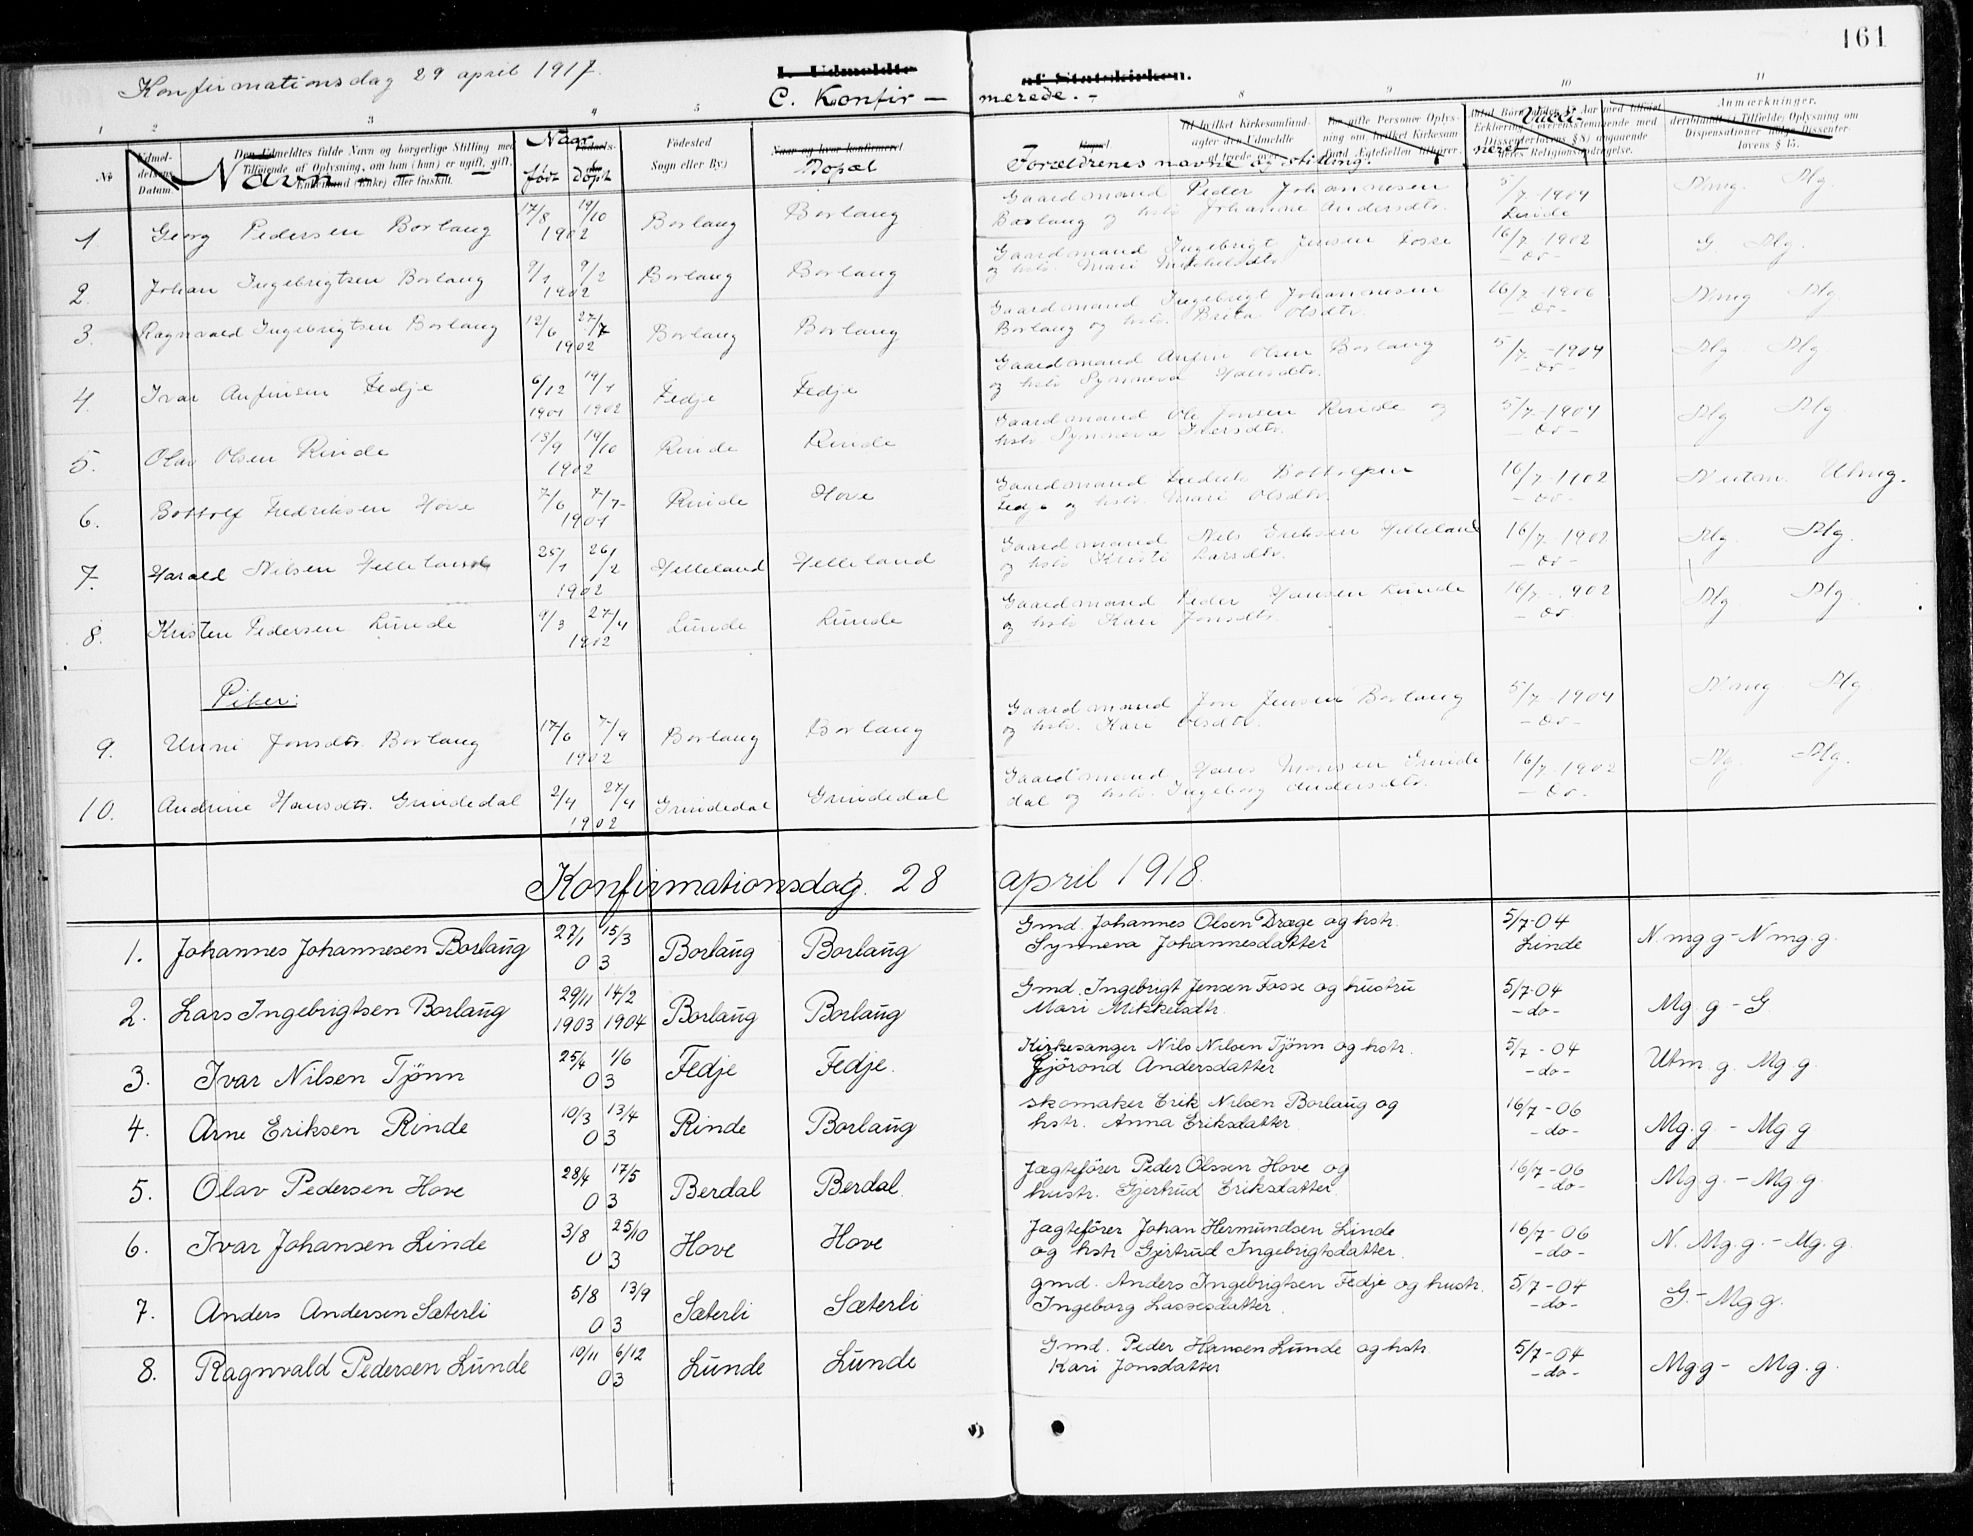 161
Konfirmationsdag 29 april 1917.
I. Udmeldte af Statskirken.
C. Konfir- merede.-
1 2 3 4 5 8 9 10 11
No Udmeldelsens Datum. Den Udmeldtes fulde Navn og borgerlige Stilling med Tilföiende af Oplysning, om han (hun) er ugift, gift, Enkemand (Enke) eller fraskilt. Födested (Sogn eller By.) Naar og hvor konfirmeret Til hvilket Kirkesamfund agter den Udmeldte at træde over. For gifte Personer Oplysning om, hvilket Kirkesamfund Ægtefællen tilhører. Anmærkninger,
Navn Naar født Døpt Bopæl Forældrenes navne og stilling. Vacci- neret
1 Georg Pedersen Borlaug 17/8 19/10 1902 Borlaug Borlaug Gaardmand Peder Johannesen Borlaug og hstr Johanne Andersdtr. 5/7-1904 Linde Nmg. Mg.
2. Johan Ingebrigtsen Borlaug 9/1 9/2 1902 Borlaug Borlaug Gaardmand Ingebrigt Jensen Fosse og hstr. Mari Mikkelsdtr. 16/7-1902 -do- G Mg.
3. Ragnvald Ingebrigtsen Borlaug 12/6 27/7 1902 Borlaug Borlaug Gaardmand Ingebrigt Johannesen Borlaug og hstr. Brita Olsdtr. 16/7-1906 -do- Nmg Mg
4. Ivar Anfinsen Fedje 6/12 1901 19/1 1902 Fedje Fedje Gaardmand Anfin Olsen Borlaug og hstr Synneva Hansdtr. 5/7-1904 -do- Mg Mg
5. Olav Olsen Rinde 13/9 19/10 1902 Rinde Rinde Gaardmand Ole Jonsen Rinde og hstr Synneva Iversdtr. 5/7-1904 -do- Mg Mg
6. Bottolf Fredriksen Hove 7/6 7/7 1901 Rinde Hove Gaardmand Fredrik Bottolfsen Fedje og hstr. Mari Olsdtr. 16/7-1902 -do- Nutm. Utmg.
7. Harald Nilsen Helleland 25/1 26/2 1902 Helleland Helleland Gaardmand Nils Eriksen Helleland og hstr Kristi Larsdtr. 16/7-1902 -do- Mg. Mg.
8. Kristen Pedersen Lunde 9/3 27/4 1902 Lunde Lunde Gaardmand Peder Hansen Lunde og hstr Kari Jonsdtr. 16/7-1902 do- Mg Mg.
Piker:
9. Unni Jonsdtr. Borlaug 17/6 7/9 1902 Borlaug Borlaug Gaardmand Jon Jensen Borlaug og hstr. Kari Olsdtr. 5/7-1904 -do- Nmg Mg
10. Andrine Hansdtr. Grindedal 2/4 27/4 1902 Grindedal Grindedal Gaardmand Hans Monsen Grindedal og hstr. Ingeborg Andersdtr. 16/7-1902 -do- Mg. Mg.
Konfirmationsdag. 28 april 1918.
1. Johannes Johannesen Borlaug 27/1 15/3 03 Borlaug Borlaug Gmd. Johannes Olsen Dræge og hstr. Synneva Johannesdatter 5/7-04 Linde N.mg g-N mg.g.
2. Lars Ingebrigtsen Borlaug 29/11 1903 14/2 1904 Borlaug Borlaug Gmd. Ingebrigt Jensen Fosse og hustru Mari Mikkelsdtr. 5/7-04 -do- Mg g - G.
3. Ivar Nilsen Tjönn 25/4 1/6 03 Fedje Fedje. Kirkesanger Nils Nilsen Tjönn og hstr. Gjörond Andersdatter 5/7-04 -do- Utm.g. Mg.g.
4. Arne Eriksen Rinde 10/3 13/4 03 Rinde Borlaug skomaker Erik Nilsen Borlaug og hstr. Anna Eriksdatter 16/7-06 -do- Mg.g. - Mg g
5. Olav Pedersen Hove 28/4 17/5 03 Berdal Berdal. Jægtefører Peder Olssen Hove og hustr. Gjertrud Eriksdatter 16/7-06 -do- Mg g. - Mg g.
6. Ivar Johansen Linde 3/8 25/10 03 Hove Hove Jægtefører Johan Hermundsen Linde og hstr Gjertrud Ingebrigtsdatter. 16/7-06 -do- N. Mg.g. - Mg.g.
7. Anders Andersen Sæterli 5/8 13/9 03 Sæterli Sæterli gmd. Anders Ingebrigtsen Fedje og hustr. Ingeborg Lassesdatter. 5/7-04 -do- G.-Mg g.
8. Ragnvald Pedersen Lunde 10/11 6/12 03 Lunde Lunde Gmd. Peder Hansen Lunde og hstr. Kari Jonsdatter 5/7-04 -do- Mgg - Mg.g.